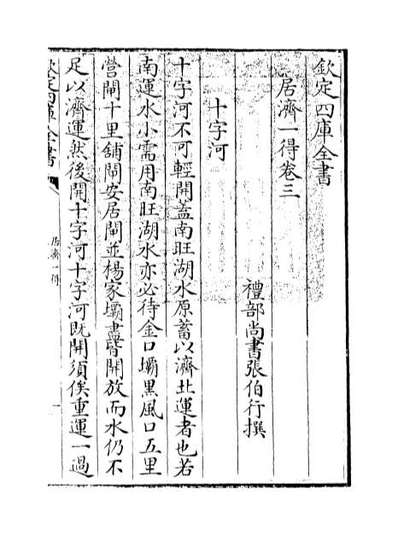 欽定四庫全書
居濟一得卷三
禮部尚書張伯行撰
十字河
十字河不可輕開蓋南旺湖水原蓄以濟北運者也若
南運水小需用南旺湖水亦必待金口壩黑風口五里
營閘十里舖閘安居閘並楊家壩盡皆開放而水仍不
足以濟運然後開十字河十字河既開須俟重運一過
欽定四庫全書
居濟一得
一